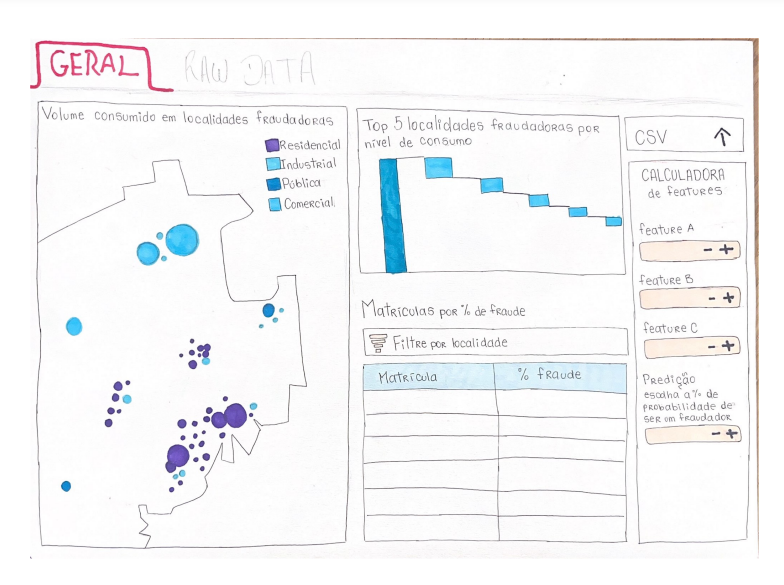 GERAL
RAW DATA
Volume consumido em localidades fraudadoras
Residencial
Industrial
Pública
Comercial
Top 5 localidades fraudadoras por
nível de consumo
Matrículas por % de fraude
Filtre por localidade
Matrícula
% fraude
CSV
CALCULADORA
de features
feature A
- +
feature B
- +
feature C
- +
Predição
escolha a % de
probabilidade de
ser um fraudador
- +